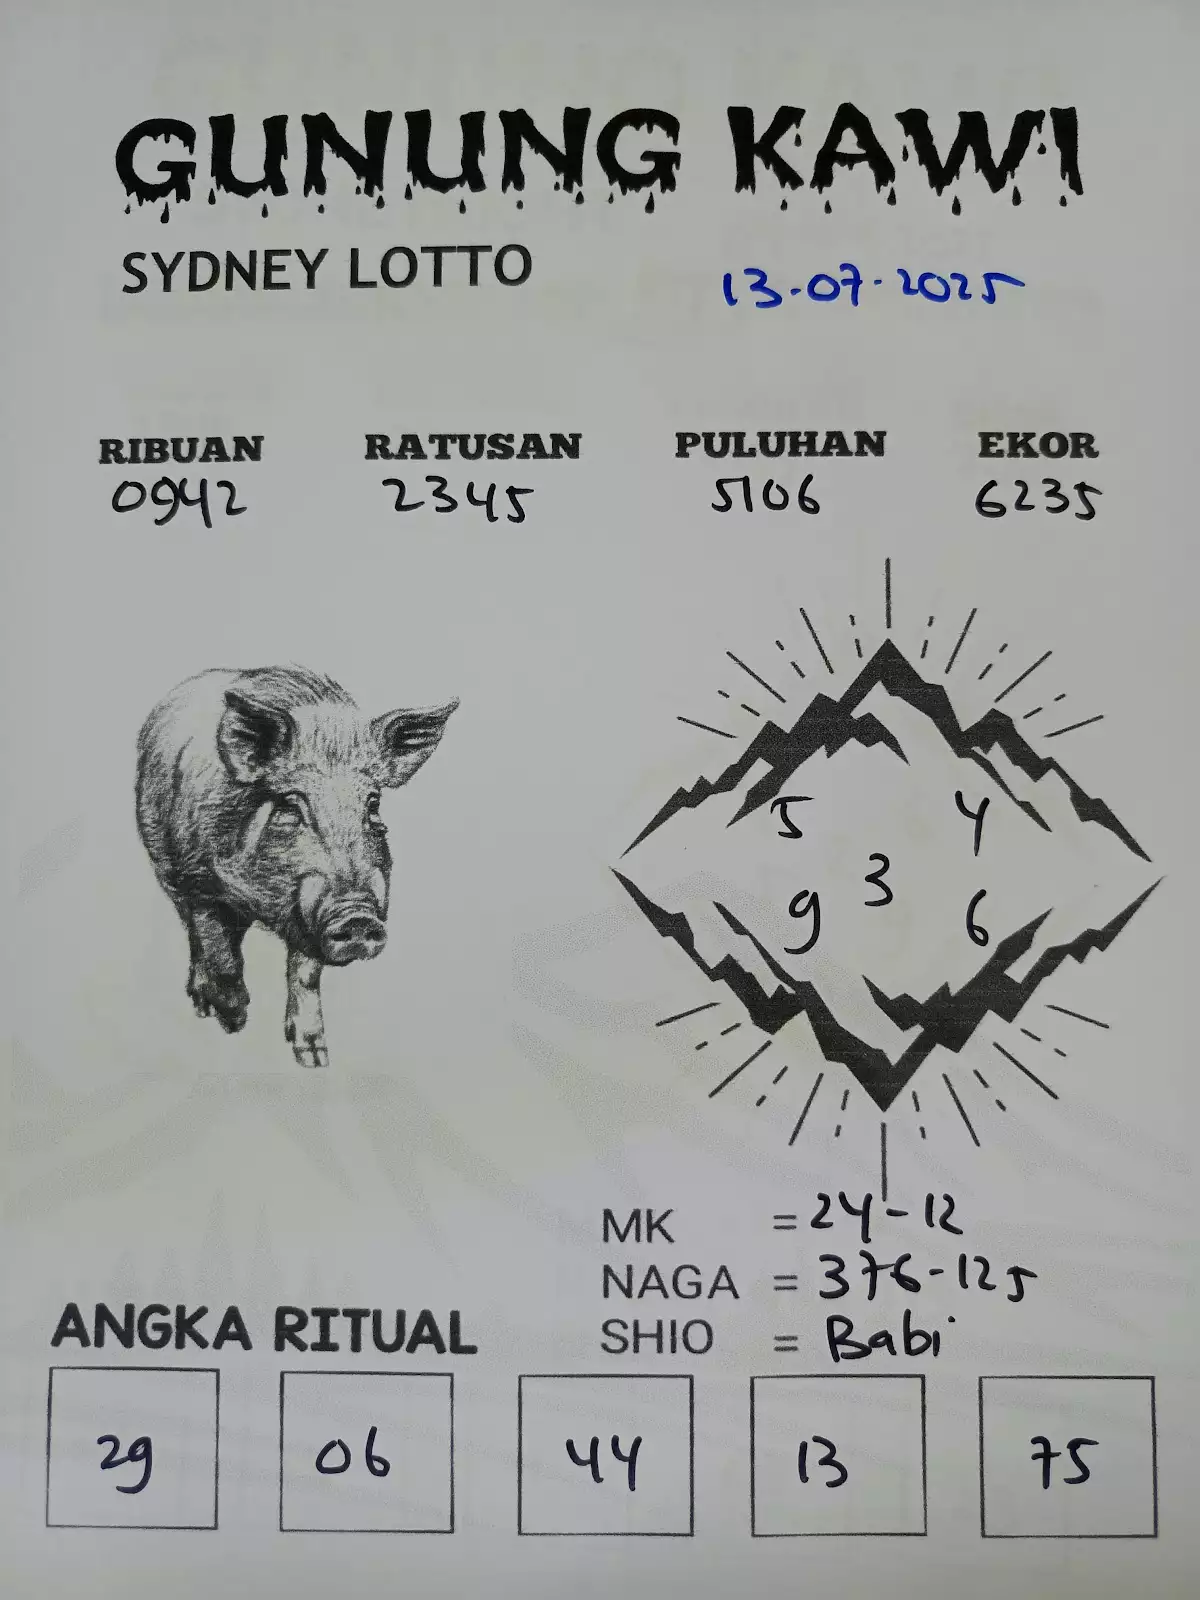 GUNUNG KAWI
SYDNEY LOTTO 13-07-2025
RIBUAN RATUSAN PULUHAN EKOR
0942 2345 5106 6235
5 4
3
9 6
MK = 24-12
NAGA = 376-125
SHIO = Babi
ANGKA RITUAL
29 06 44 13 75